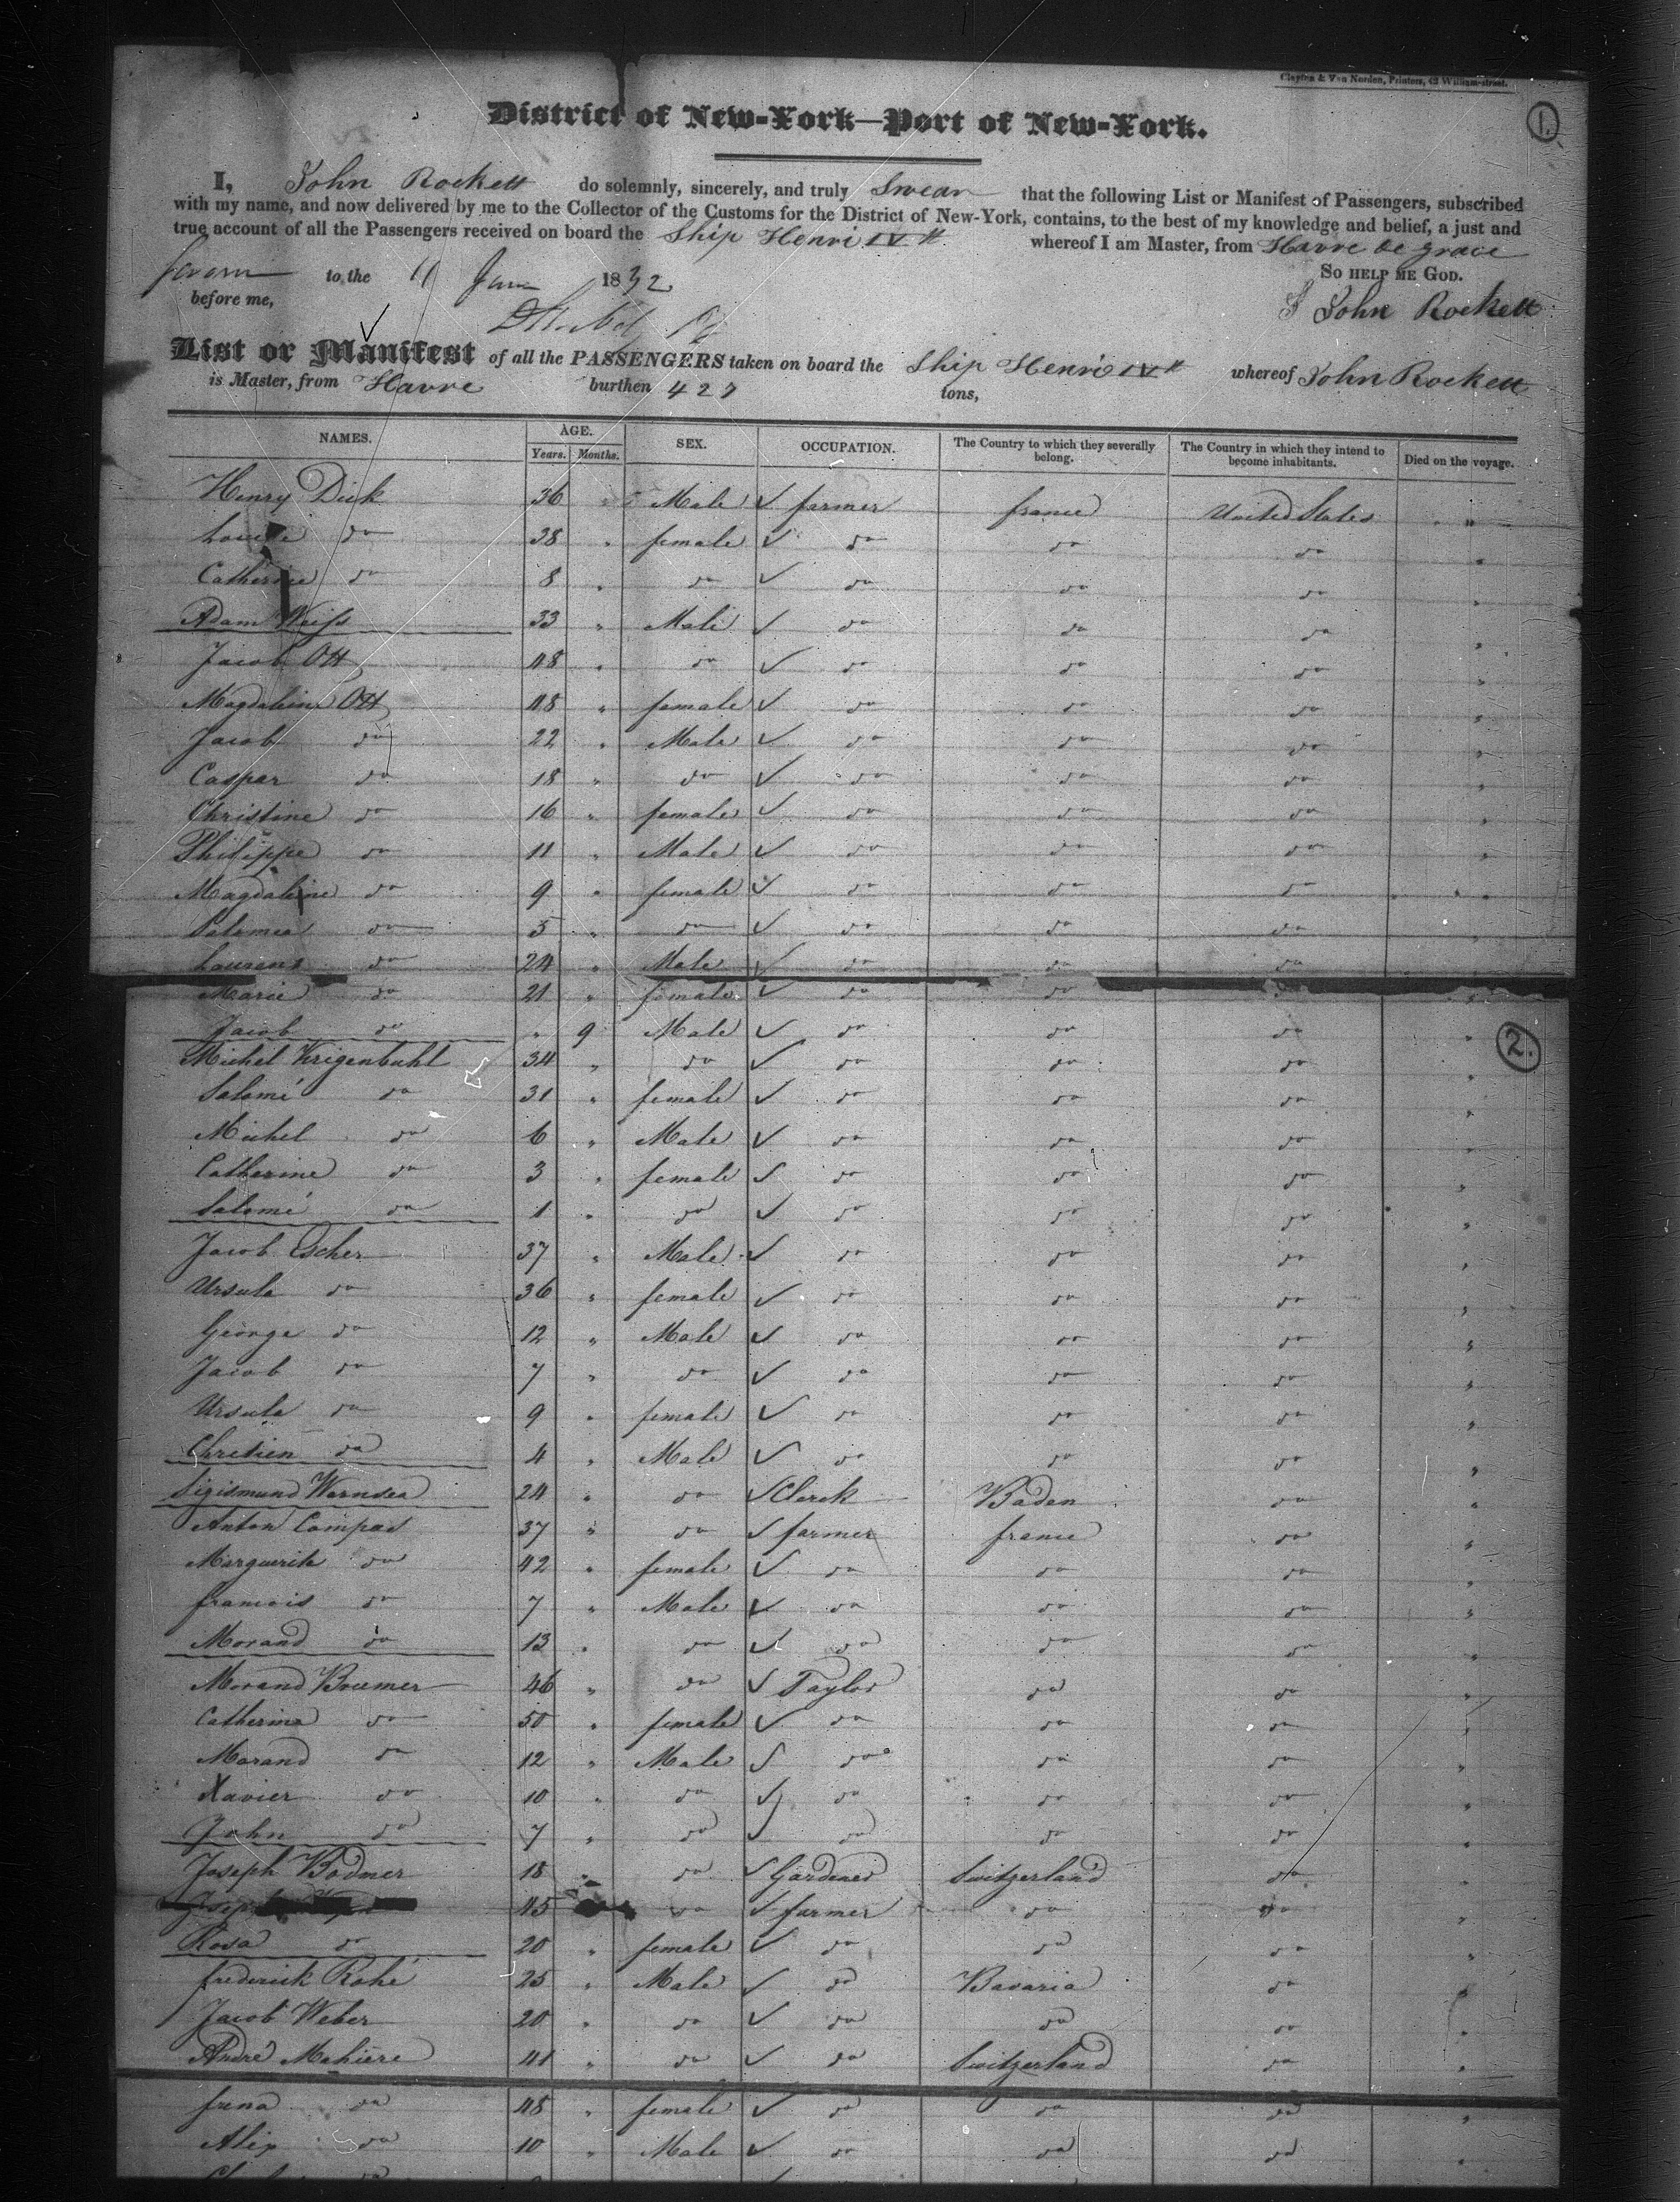 Clayton & Van Norden, Printers, 42 William-street.
1.
District of New-York—Port of New-York.
I, John Rockett do solemnly, sincerely, and truly Swear that the following List or Manifest of Passengers, subscribed
with my name, and now delivered by me to the Collector of the Customs for the District of New-York, contains, to the best of my knowledge and belief, a just and
true account of all the Passengers received on board the Ship Henri IVth whereof I am Master, from Havre de grace
Sworn to the 11 June 1832 So help me God.
before me, John Rockett
List or Manifest of all the PASSENGERS taken on board the Ship Henri IVth whereof John Rockett
is Master, from Havre burthen 427 tons,
NAMES. AGE. SEX. OCCUPATION. The Country to which they severally belong. The Country in which they intend to become inhabitants. Died on the voyage.
Years. Months.
Henry Dick 36 " Male farmer france United States "
Louise do 38 " female do do do "
Catherine do 8 " do do do do "
Adam Weiss 33 " Male do do do "
Jacob Ott 48 " do do do do "
Magdaline Ott 48 " female do do do "
Jacob do 22 " Male do do do "
Caspar do 18 " do do do do "
Christine do 16 " female do do do "
Philippe do 11 " Male do do do "
Magdaline do 9 " female do do do "
Salomea do 5 " do do do do "
Laurens do 24 " Male do do do
Marie do 21 " female do do "
Jacob do " 9 Male do do do "
2.
Michel Krigenbuhl 34 " do do do do "
Salomé do 31 " female do do do "
Michel do 6 " Male do do do "
Catherine do 3 " female do do do "
Salomé do 1 " do do do do "
Jacob Escher 37 " Male do do do "
Ursula do 36 " female do do do "
George do 12 " Male do do do "
Jacob do 7 " do do do do "
Ursula do 9 " female do do do "
Chretien do 4 " Male do do do "
Sigismund Warnsea 24 " do Clerck Baden do "
Anton Compas 37 " do farmer france do "
Marguerite do 42 " female do do do "
francois do 7 " Male do do do "
Morand do 13 " do do do do "
Morand Boumer 46 " do Taylor do do "
Catherina do 50 " female do do do "
Morand do 12 " Male do do do "
Xavier do 10 " do do do do "
John do 7 " do do do do "
Joseph Bodmer 18 " do Gardener Switzerland do "
Joseph 45 do farmer do do "
Rosa do 20 " female do do do "
frederick Rohé 25 " Male do Bavaria do "
Jacob Weber 20 " do do do do "
André Mahiere 41 " do do Switzerland do "
frena do 48 " female do do do "
Alix do 10 " Male do do do "